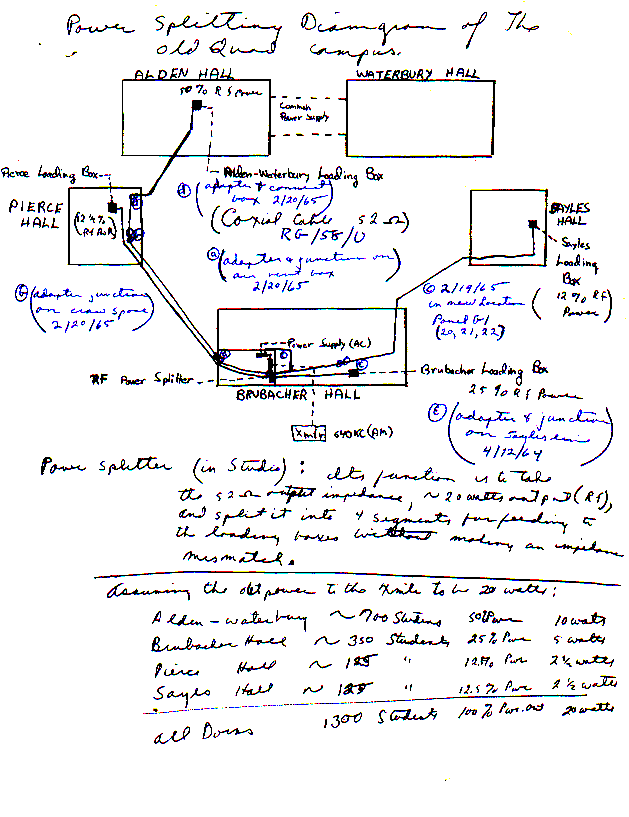 Power Splitting Diamgram of The
Old Quad campus.
ALDEN HALL
WATERBURY HALL
50% RF Power
Common
Power Supply
Pierce Loading Box
Alden-Waterbury Loading Box
(d) (adapter & connect
box 2/20/65)
(Coaxial Cable 52Ω)
RG/58/U
PIERCE
HALL
(12½%
Rf Pwr)
SAYLES
HALL
Sayles
Loading
Box
(12% RF
Power)
(a) (adapter & junction on
air vent box
2/20/65)
(b) (adapter junction
on crawl space
2/20/65)
(c) 2/19/65
in new location
Panel G1
(20, 21, 22)
Power Supply (AC)
RF Power Splitter
Brubacher Loading Box
25% Rf Power
BRUBACHER HALL
Xmtr 640KC (AM)
(E) (adapter & junction
on Sayles line
4/12/64)
Power splitter (in Studio): Its function is to take
the 52Ω output impedance, ~20 watts output (Rf),
and split it into 4 segments for feeding to
the loading boxes without making an impedance
mismatch.
Assuming the output power to the xmtr to be 20 watts:
Alden-Waterbury ~ 700 Students 50% Pwr 10 watts
Brubacher Hall ~ 350 Students 25% Pwr 5 watts
Pierce Hall ~ 125 " 12.5% Pwr 2½ watts
Sayles Hall ~ 125 " 12.5% Pwr 2½ watts
all Dorms 1300 Students 100% Pwr. out 20 watts